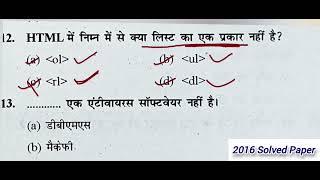 12. HTML में निम्न में से क्या लिस्ट का एक प्रकार नहीं है?
(a) <ol> (b) <ul>
(c) <rl> (d) <dl>
13. ............ एक एंटीवायरस सॉफ्टवेयर नहीं है।
(a) डीबीएमएस
(b) मैकेफी
2016 Solved Paper